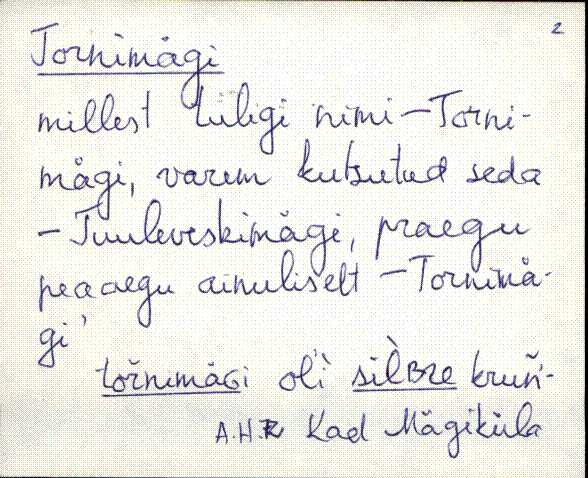 2
Tornimägi
millest tuligi nimi – Torni-
mägi, varem kutsutud seda
– Tuuleveskimägi, praegu
peaaegu ainuliselt – Tornimä-
gi
torńimäGi oĺi siĹBRe kruń-
A.H.R Kad Mägiküla